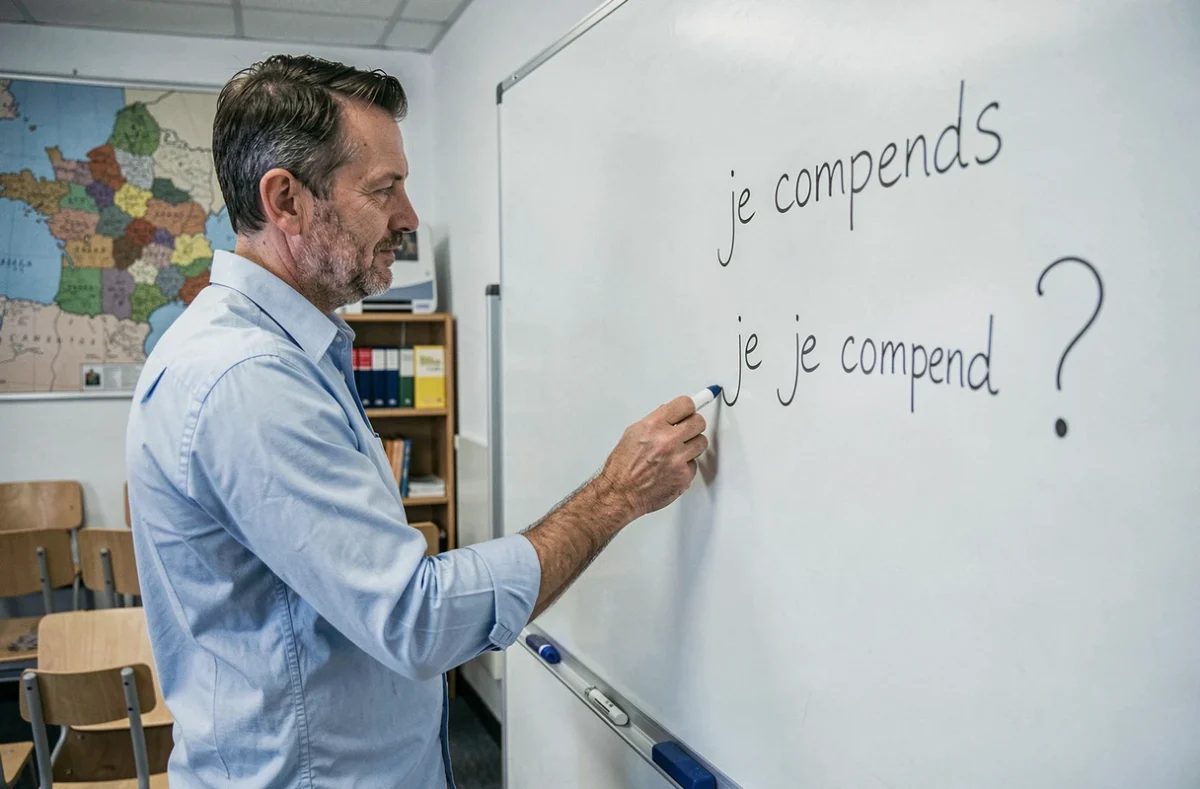 je compends
je je compend ?